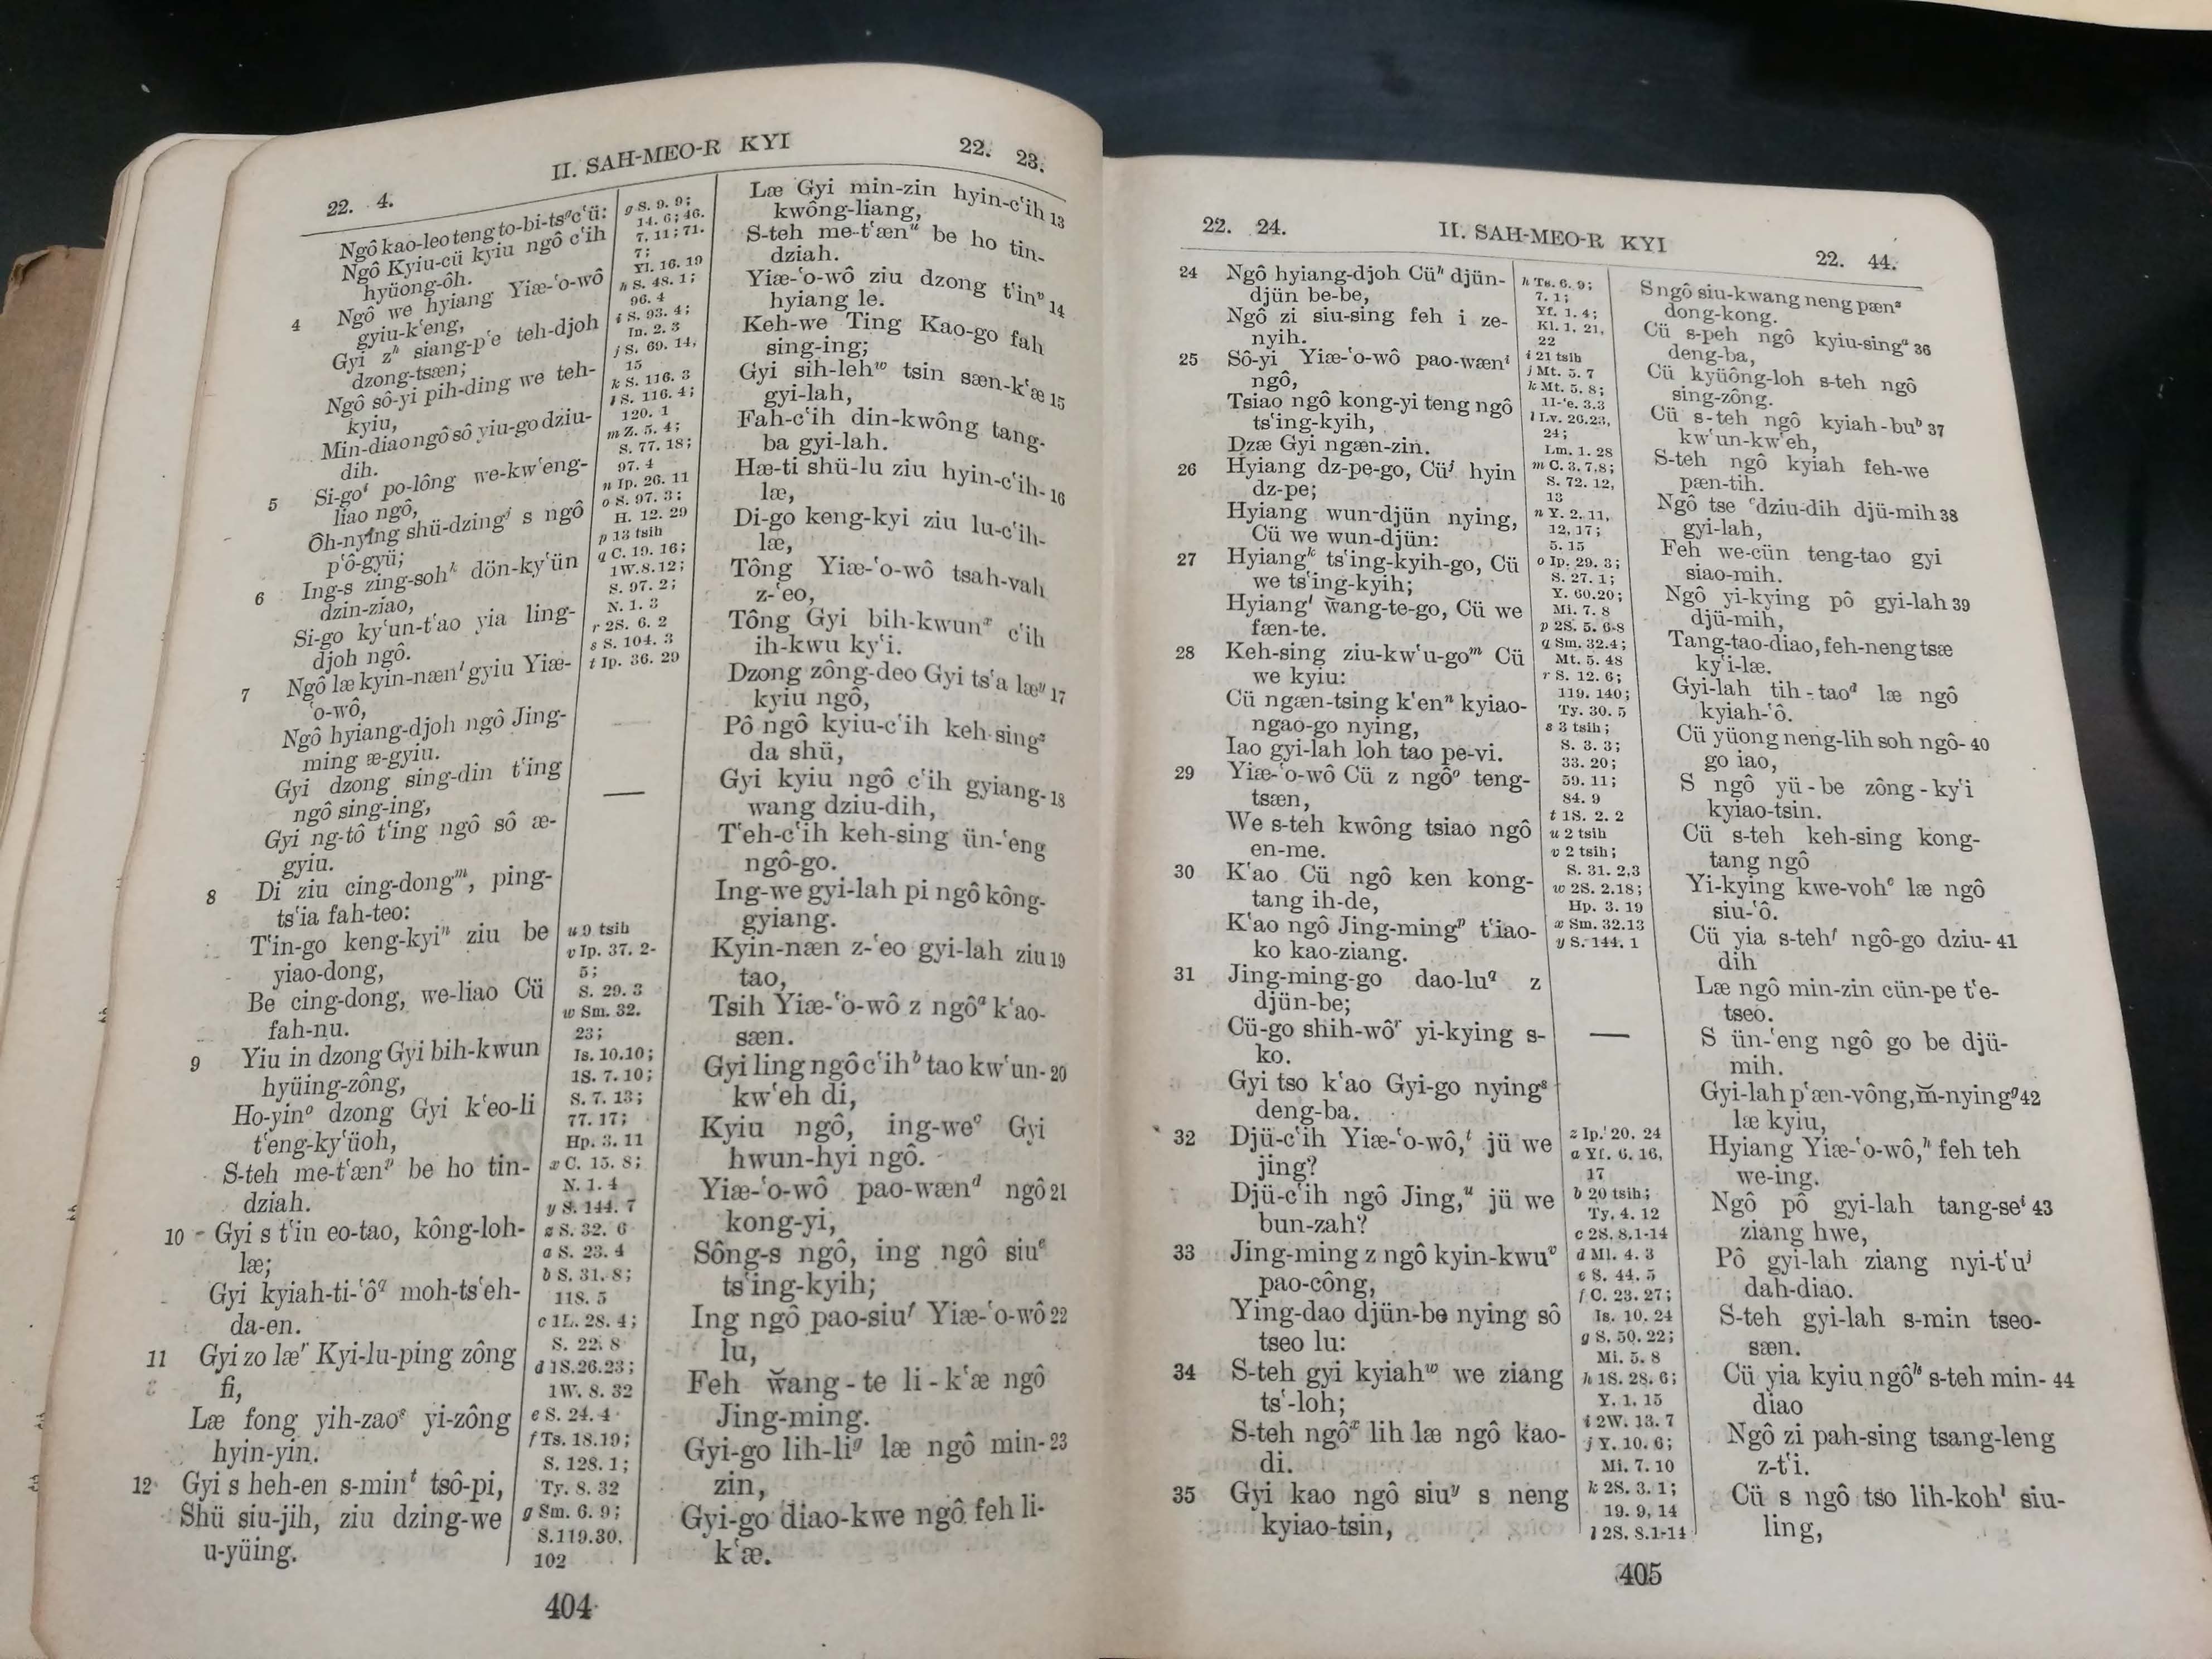 22. 4.
II. SAH-MEO-R KYI
22. 23.
Ngô kao-leo teng to-bi-tsᵍ c‘ü:
Ngô Kyiu-cü kyiu ngô c‘ih
hyüong-ôh.
4 Ngô we hyiang Yiæ-‘o-wô
gyiu-k‘eng,
Gyi zʰ siang-p‘e teh-djoh
dzong-tsæn;
Ngô sô-yi pih-ding we teh-
kyiu,
Min-diao ngô sô yiu-go dziu-
dih.
5 Si-goⁱ po-lông we-kw‘eng-
liao ngô,
Ôh-nying shü-dzingʲ s ngô
p‘ô-gyü;
6 Ing-s zing-sohᵏ dön-ky‘ün
dzin-ziao,
Si-go ky‘un-t‘ao yia ling-
djoh ngô.
7 Ngô læ kyin-nænˡ gyiu Yiæ-
‘o-wô,
Ngô hyiang-djoh ngô Jing-
ming æ-gyiu.
Gyi dzong sing-din t‘ing
ngô sing-ing,
Gyi ng-tô t‘ing ngô sô æ-
gyiu.
8 Di ziu cing-dongᵐ, ping-
ts‘ia fah-teo:
T‘in-go keng-kyiⁿ ziu be
yiao-dong,
Be cing-dong, we-liao Cü
fah-nu.
9 Yiu in dzong Gyi bih-kwun
hyüing-zông,
Ho-yinᵒ dzong Gyi k‘eo-li
t‘eng-ky‘üoh,
S-teh me-t‘ænᵖ be ho tin-
dziah.
10 Gyi s t‘in eo-tao, kông-loh-
læ;
Gyi kyiah-ti-‘ô𐞥 moh-ts‘eh-
da-en.
11 Gyi zo læʳ Kyi-lu-ping zông
fi,
Læ fong yih-zaoˢ yi-zông
hyin-yin.
12 Gyi s heh-en s-minᵗ tsô-pi,
Shü siu-jih, ziu dzing-we
u-yüing.
g S. 9. 9;
14. 6; 46.
7, 11; 71.
7;
Yl. 16. 19
h S. 48. 1;
96. 4
i S. 93. 4;
In. 2. 3
j S. 69. 14,
15
k S. 116. 3
l S. 116. 4;
120. 1
m Z. 5. 4;
S. 77. 18;
97. 4
n Ip. 26. 11
o S. 97. 3;
H. 12. 29
p 13 tsih
q C. 19. 16;
1W. 8. 12;
S. 97. 2;
N. 1. 3
r 2S. 6. 2
s S. 104. 3
t Ip. 36. 29
u 9 tsih
v Ip. 37. 2-
5;
S. 29. 3
w Sm. 32.
23;
Is. 10. 10;
1S. 7. 10;
S. 7. 13;
77. 17;
Hp. 3. 11
x C. 15. 8;
N. 1. 4
y S. 144. 7
z S. 32. 6
a S. 23. 4
b S. 31. 8;
118. 5
c 1L. 28. 4;
S. 22. 8
d 1S. 26. 23;
1W. 8. 32
e S. 24. 4
f Ts. 18. 19;
S. 128. 1;
Ty. 8. 32
g Sm. 6. 9;
S. 119. 30,
102
Læ Gyi min-zin hyin-c‘ih 13
kwông-liang,
S-teh me-t‘ænᵘ be ho tin-
dziah.
Yiæ-‘o-wô ziu dzong t‘inᵛ 14
hyiang le.
Keh-we Ting Kao-go fah
sing-ing;
Gyi sih-lehʷ tsin sæn-k‘æ 15
gyi-lah,
Fah-c‘ih din-kwông tang-
ba gyi-lah.
Hæ-ti shü-lu ziu hyin-c‘ih- 16
læ,
Di-go keng-kyi ziu lu-c‘ih-
læ,
Tông Yiæ-‘o-wô tsah-vah
z-‘eo,
Tông Gyi bih-kwunˣ c‘ih
ih-kwu ky‘i.
Dzong zông-deo Gyi ts‘a læʸ 17
kyiu ngô,
Pô ngô kyiu-c‘ih keh-singᶻ
da shü,
Gyi kyiu ngô c‘ih gyiang- 18
wang dziu-dih,
T‘eh-c‘ih keh-sing ün-‘eng
ngô-go.
Ing-we gyi-lah pi ngô kông-
gyiang.
Kyin-næn z-‘eo gyi-lah ziu 19
tao,
Tsih Yiæ-‘o-wô z ngôᵃ k‘ao-
sæn.
Gyi ling ngô c‘ihᵇ tao kw‘un- 20
kw‘eh di,
Kyiu ngô, ing-weᶜ Gyi
hwun-hyi ngô.
Yiæ-‘o-wô pao-wænᵈ ngô 21
kong-yi,
Sông-s ngô, ing ngô siuᵉ
ts‘ing-kyih;
Ing ngô pao-siuᶠ Yiæ-‘o-wô 22
lu,
Feh w̆ang-te li-k‘æ ngô
Jing-ming.
Gyi-go lih-liᵍ læ ngô min- 23
zin,
Gyi-go diao-kwe ngô feh li-
k‘æ.
404
22. 24.
II. SAH-MEO-R KYI
22. 44.
24 Ngô hyiang-djoh Cüʰ djün-
djün be-be,
Ngô zi siu-sing feh i ze-
nyih.
25 Sô-yi Yiæ-‘o-wô pao-wænⁱ
ngô,
Tsiao ngô kong-yi teng ngô
ts‘ing-kyih,
Dzæ Gyi ngæn-zin.
26 Hyiang dz-pe-go, Cüʲ hyin
dz-pe;
Hyiang wun-djün nying,
Cü we wun-djün:
27 Hyiangᵏ ts‘ing-kyih-go, Cü
we ts‘ing-kyih;
Hyiangˡ w̆ang-te-go, Cü we
fæn-te.
28 Keh-sing ziu-kw‘u-goᵐ Cü
we kyiu:
Cü ngæn-tsing k‘enⁿ kyiao-
ngao-go nying,
Iao gyi-lah loh tao pe-vi.
29 Yiæ-‘o-wô Cü z ngôᵒ teng-
tsæn,
We s-teh kwông tsiao ngô
en-me.
30 K‘ao Cü ngô ken kong-
tang ih-de,
K‘ao ngô Jing-mingᵖ t‘iao-
ko kao-ziang.
31 Jing-ming-go dao-lu𐞥 z
djün-be;
Cü-go shih-wôʳ yi-kying s-
ko.
Gyi tso k‘ao Gyi-go nyingˢ
deng-ba.
32 Djü-c‘ih Yiæ-‘o-wô,ᵗ jü we
jing?
Djü-c‘ih ngô Jing,ᵘ jü we
bun-zah?
33 Jing-ming z ngô kyin-kwuᵛ
pao-công,
Ying-dao djün-be nying sô
tseo lu:
34 S-teh gyi kyiahʷ we ziang
ts‘-loh;
S-teh ngôˣ lih læ ngô kao-
di.
35 Gyi kao ngô siuʸ s neng
kyiao-tsin,
h Ts. 6. 9;
7. 1;
Yf. 1. 4;
Kl. 1. 21,
22
i 21 tsih
j Mt. 5. 7
k Mt. 5. 8;
II-‘e. 3. 3
l Lv. 26. 23,
24;
Lm. 1. 28
m C. 3. 7, 8;
S. 72. 12,
13
n Y. 2. 11,
12, 17;
5. 15
o Ip. 29. 3;
S. 27. 1;
Y. 60. 20;
Mi. 7. 8
p 2S. 5. 6-8
q Sm. 32. 4;
Mt. 5. 48
r S. 12. 6;
119. 140;
Ty. 30. 5
s 3 tsih;
S. 3. 3;
33. 20;
59. 11;
84. 9
t 1S. 2. 2
u 2 tsih
v 2 tsih;
S. 31. 2, 3
w 2S. 2. 18;
Hp. 3. 19
x Sm. 32. 13
y S. 144. 1
z Ip. 20. 24
a Yf. 6. 16,
17
b 20 tsih;
Ty. 4. 12
c 2S. 8. 1-14
d Ml. 4. 3
e S. 44. 5
f C. 23. 27;
Is. 10. 24
g S. 50. 22;
Mi. 5. 8
h 1S. 28. 6;
Y. 1. 15
i 2W. 13. 7
j Y. 10. 6;
Mi. 7. 10
k 2S. 3. 1;
19. 9, 14
l 2S. 8. 1-14
S ngô siu-kwang neng pænᶻ
dong-kong.
Cü s-peh ngô kyiu-singᵃ 36
deng-ba,
Cü kyüông-loh s-teh ngô
sing-zông.
Cü s-teh ngô kyiah-buᵇ 37
kw‘un-kw‘eh,
S-teh ngô kyiah feh-we
pæn-tih.
Ngô tse ᶜdziu-dih djü-mih 38
gyi-lah,
Feh we-cün teng-tao gyi
siao-mih.
Ngô yi-kying pô gyi-lah 39
djü-mih,
Tang-tao-diao, feh-neng tsæ
ky‘i-læ.
Gyi-lah tih-taoᵈ læ ngô
kyiah-‘ô.
Cü yüong neng-lih soh ngô- 40
go iao,
S ngô yü-be zông-ky‘i
kyiao-tsin.
Cü s-teh keh-sing kong-
tang ngô
Yi-kying kwe-vohᵉ læ ngô
siu-‘ô.
Cü yia s-tehᶠ ngô-go dziu- 41
dih
Læ ngô min-zin cün-pe t‘e-
tseo.
S ün-‘eng ngô go be djü-
mih.
Gyi-lah p‘æn-vông, m̆-nyingᵍ 42
læ kyiu,
Hyiang Yiæ-‘o-wô,ʰ feh teh
we-ing.
Ngô pô gyi-lah tang-seⁱ 43
ziang hwe,
Pô gyi-lah ziang nyi-t‘uʲ
dah-diao.
S-teh gyi-lah s-min tseo-
sæn.
Cü yia kyiu ngôᵏ s-teh min- 44
diao
Ngô zi pah-sing tsang-leng
z-t‘i.
Cü s ngô tso lih-kohˡ siu-
ling,
405